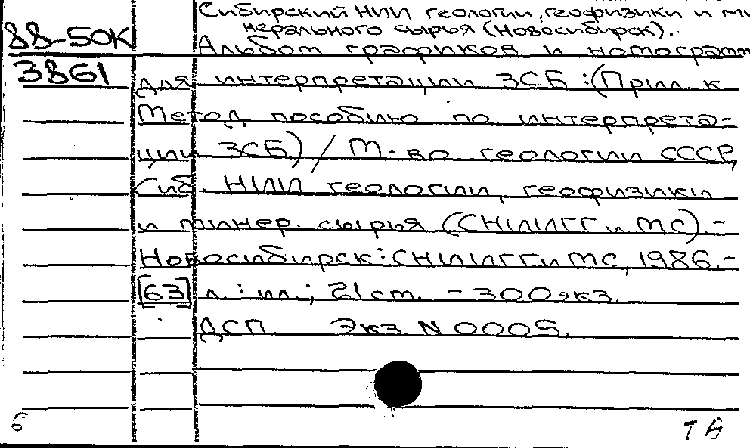 Сибирский НИИ геологии, геофизики и ми
нерального сырья (Новосибирск).
88-50К
Альбом графиков и номограмм
3861
для интерпретации ЗСБ : (Прил. к
Метод. пособию по интерпрета-
ции ЗСБ) / М-во геологии СССР,
Сиб. НИИ геологии, геофизики
и минер. сырья (СНИИГГ и МС). -
Новосибирск : СНИИГГ и МС, 1986. -
[63] л. : ил.; 21 см. - 300 экз.
ДСП Экз N 0005.
б